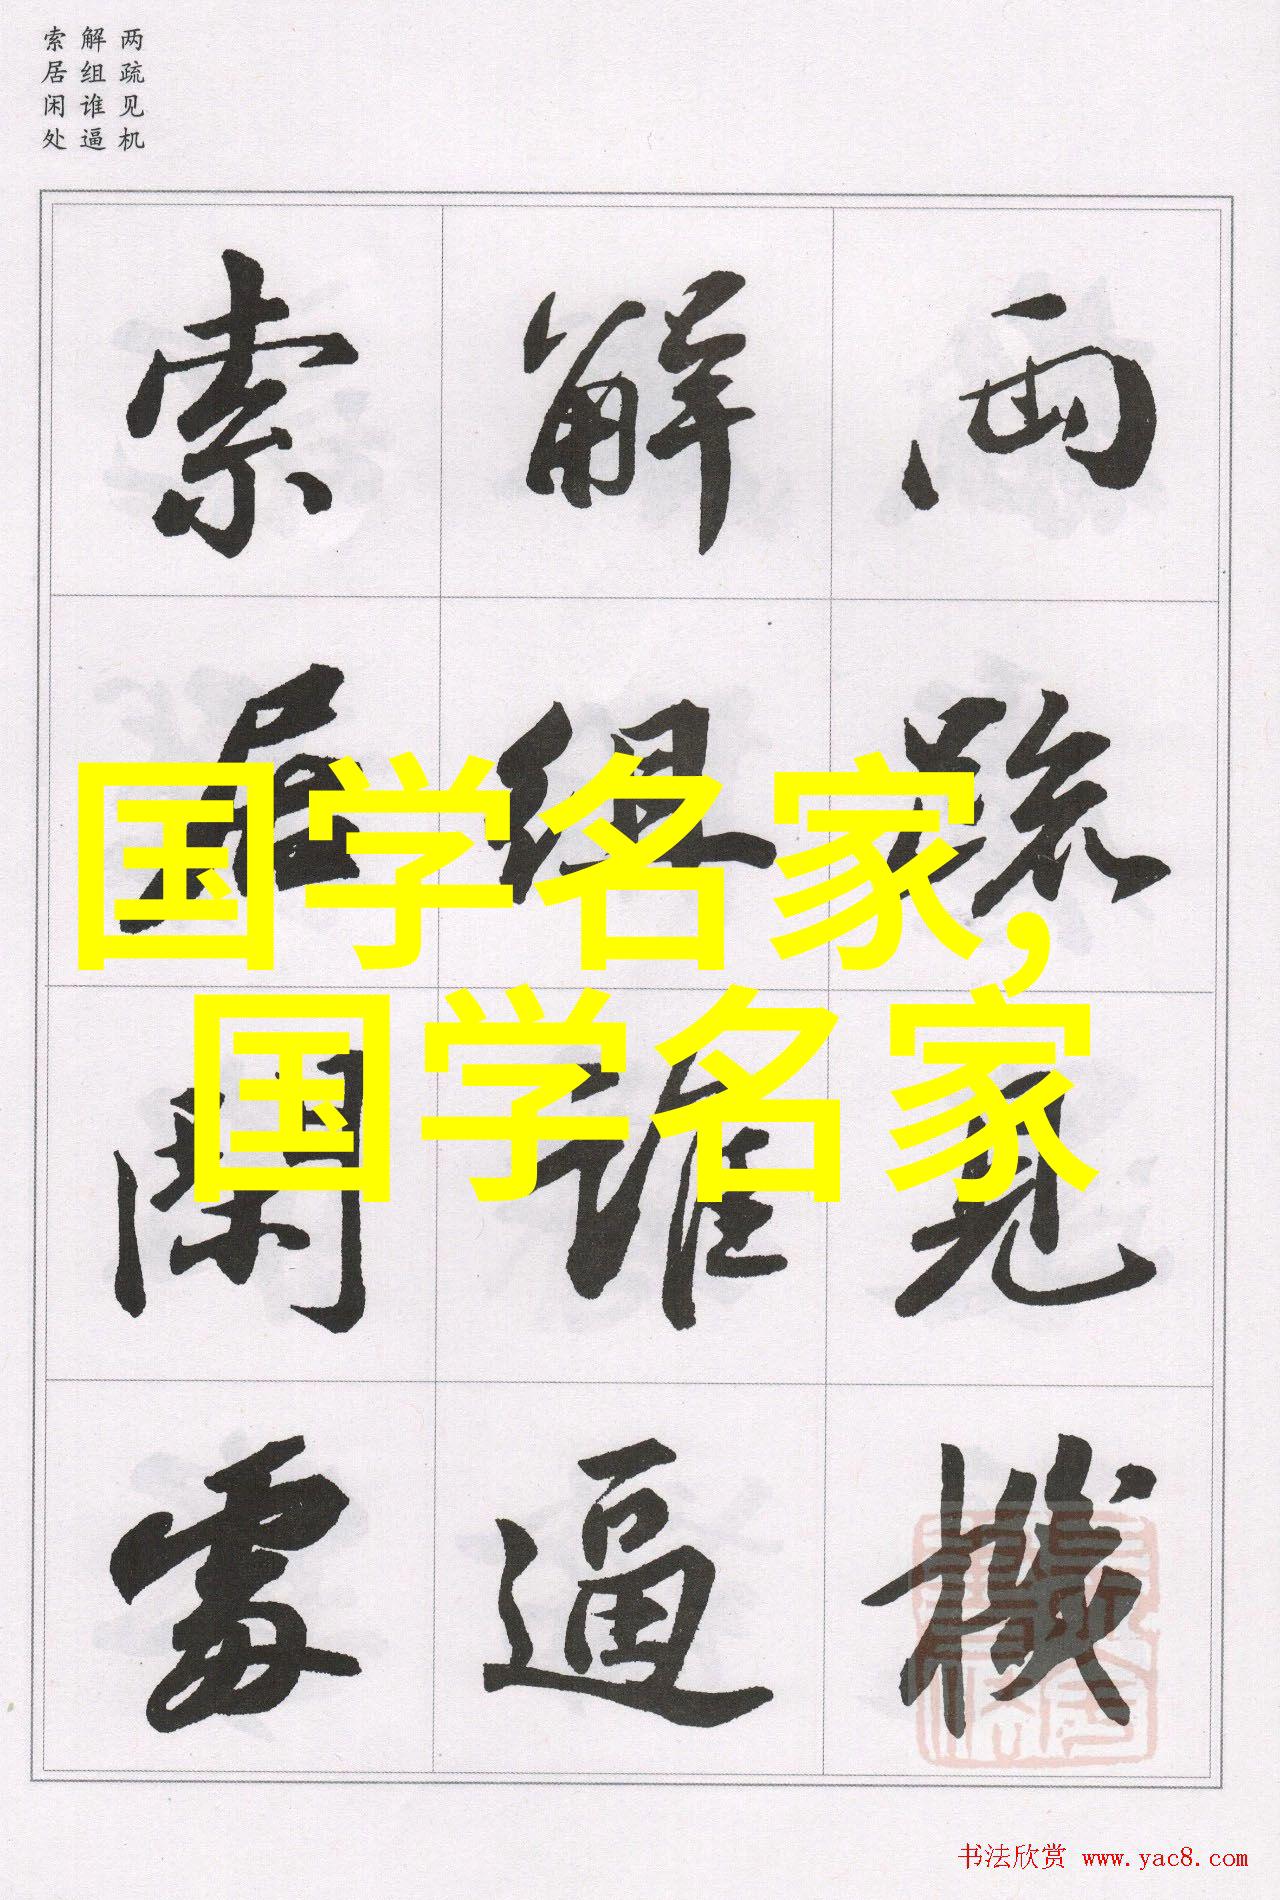 两疏见机
解组谁逼
索居闲处
两疏見機
解組誰逼
索居閑處
国学名家,
国学名家
书法欣赏 www.yac8.com